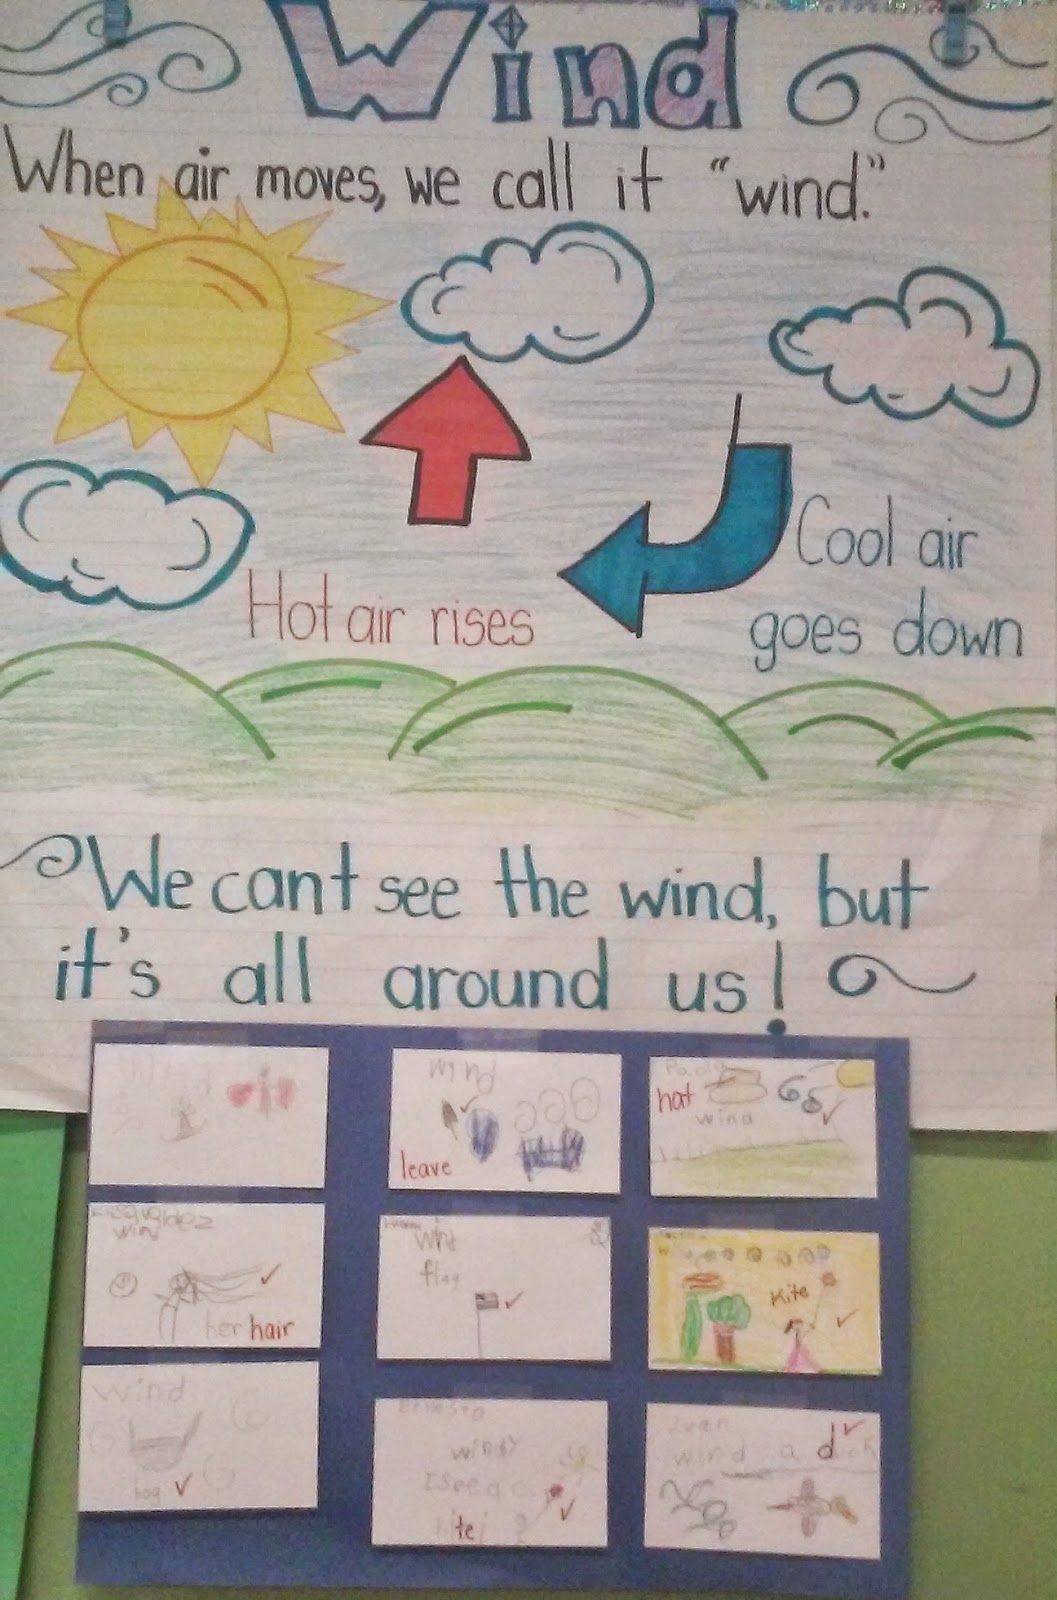 Wind
When air moves, we call it "wind."
Cool air
goes down
Hot air rises
We cant see the wind, but
it's all around us!
wind
leave
hat
wind
wind
her hair
wind
flag
Kite
wind
bag
windy
I see a
wind a